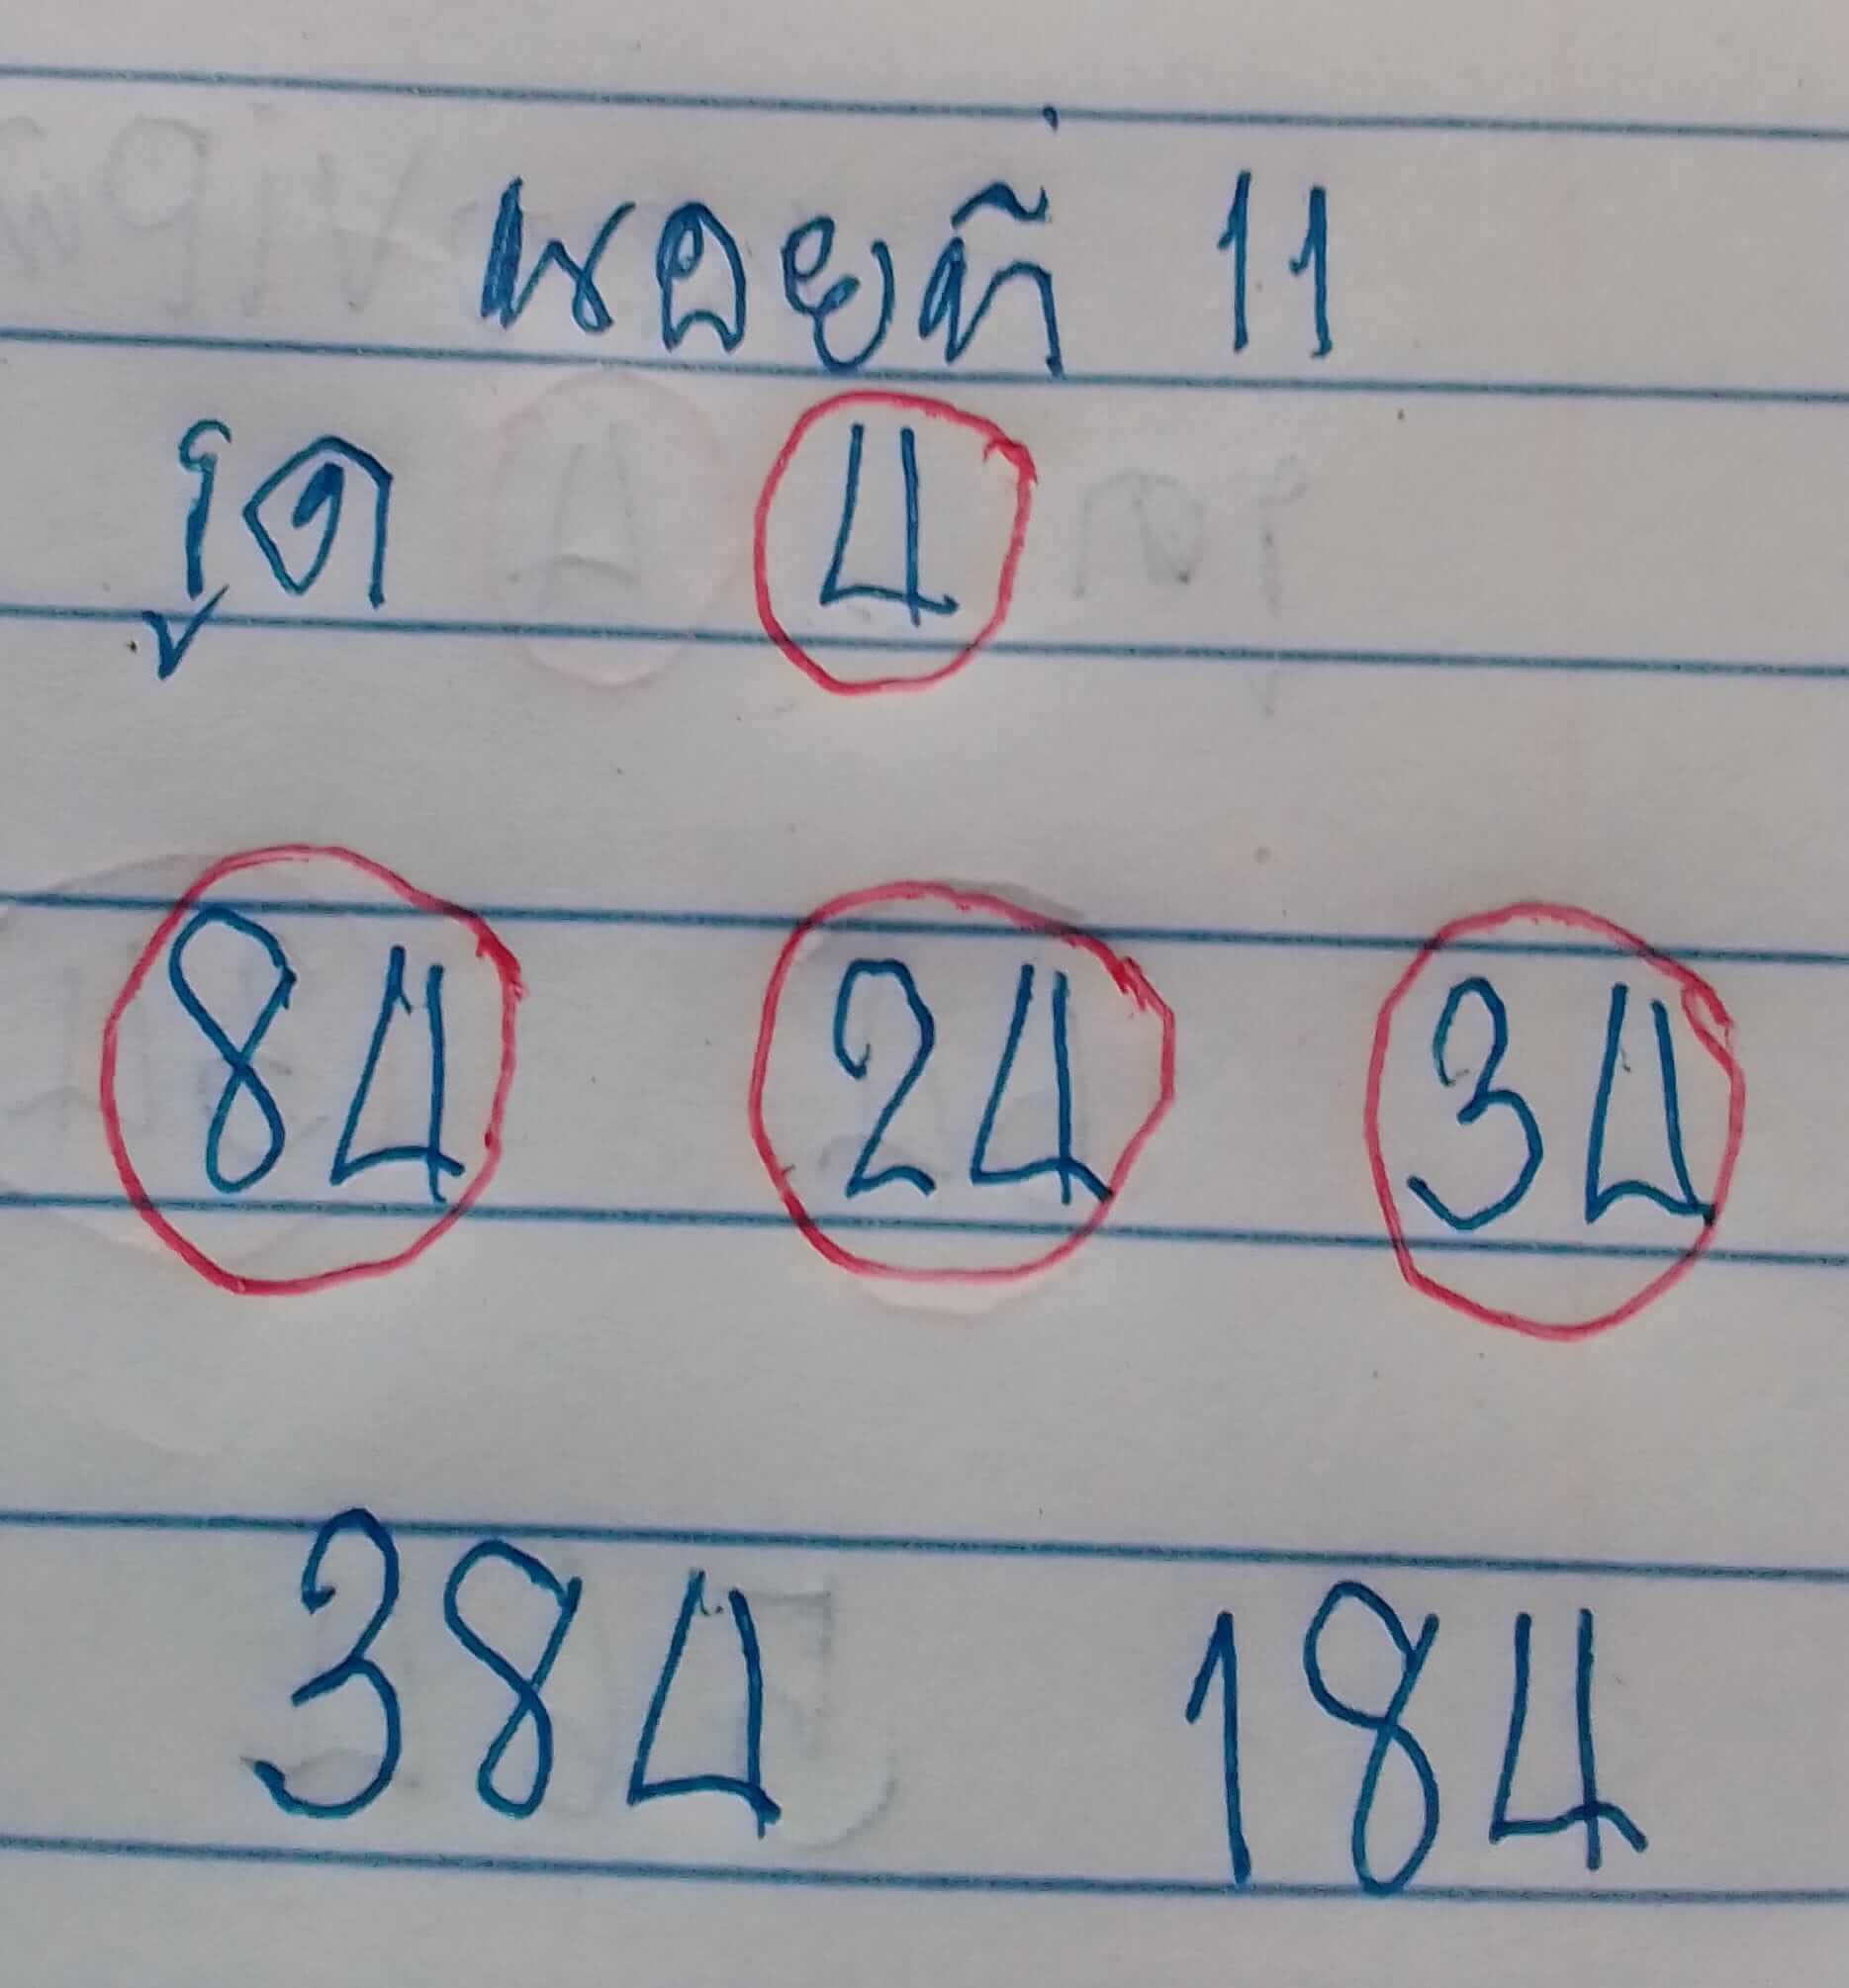 หวยที่ 11
รูด 4
84 24 34
384 184